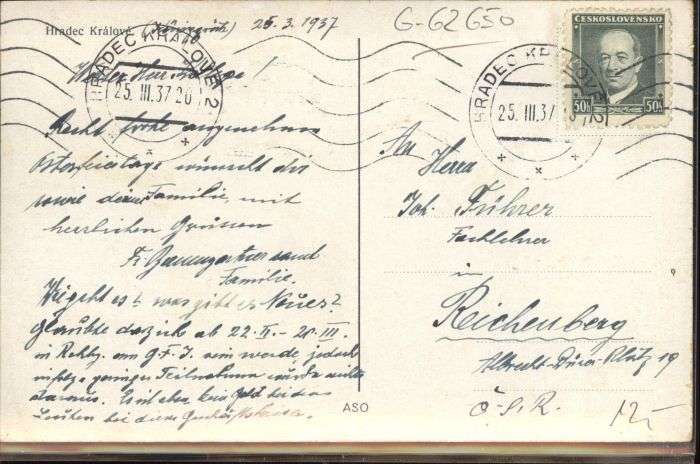 Hradec Králové. (Königgrätz) 25.3.1937
G-62650
ČESKOSLOVENSKO
50h 50h
HRADEC KRÁLOVÉ 2
25. III. 37
HRADEC KRÁLOVÉ 2
25. III. 37
Recht frohe angenehme
Osterfeiertage wünscht dir
sowie deiner Familie, mit
herzlichen Grüssen
Fr. Baumgartner samt
Familie.
Wie geht es? was gibt es Neues?
Glaubte dazich ab 22. II. - 20. III.
in sein werde, jedoch
infolge geringer Teilnahme wurde nichts
daraus. Es ist eben kein Geld bei den
Leuten bei diesen
ASO
An Herrn
Joh. Führer
Fachlehrer
in
Reichenberg
Albrecht-Dürer-Platz 19
Č.S.R.
12,-